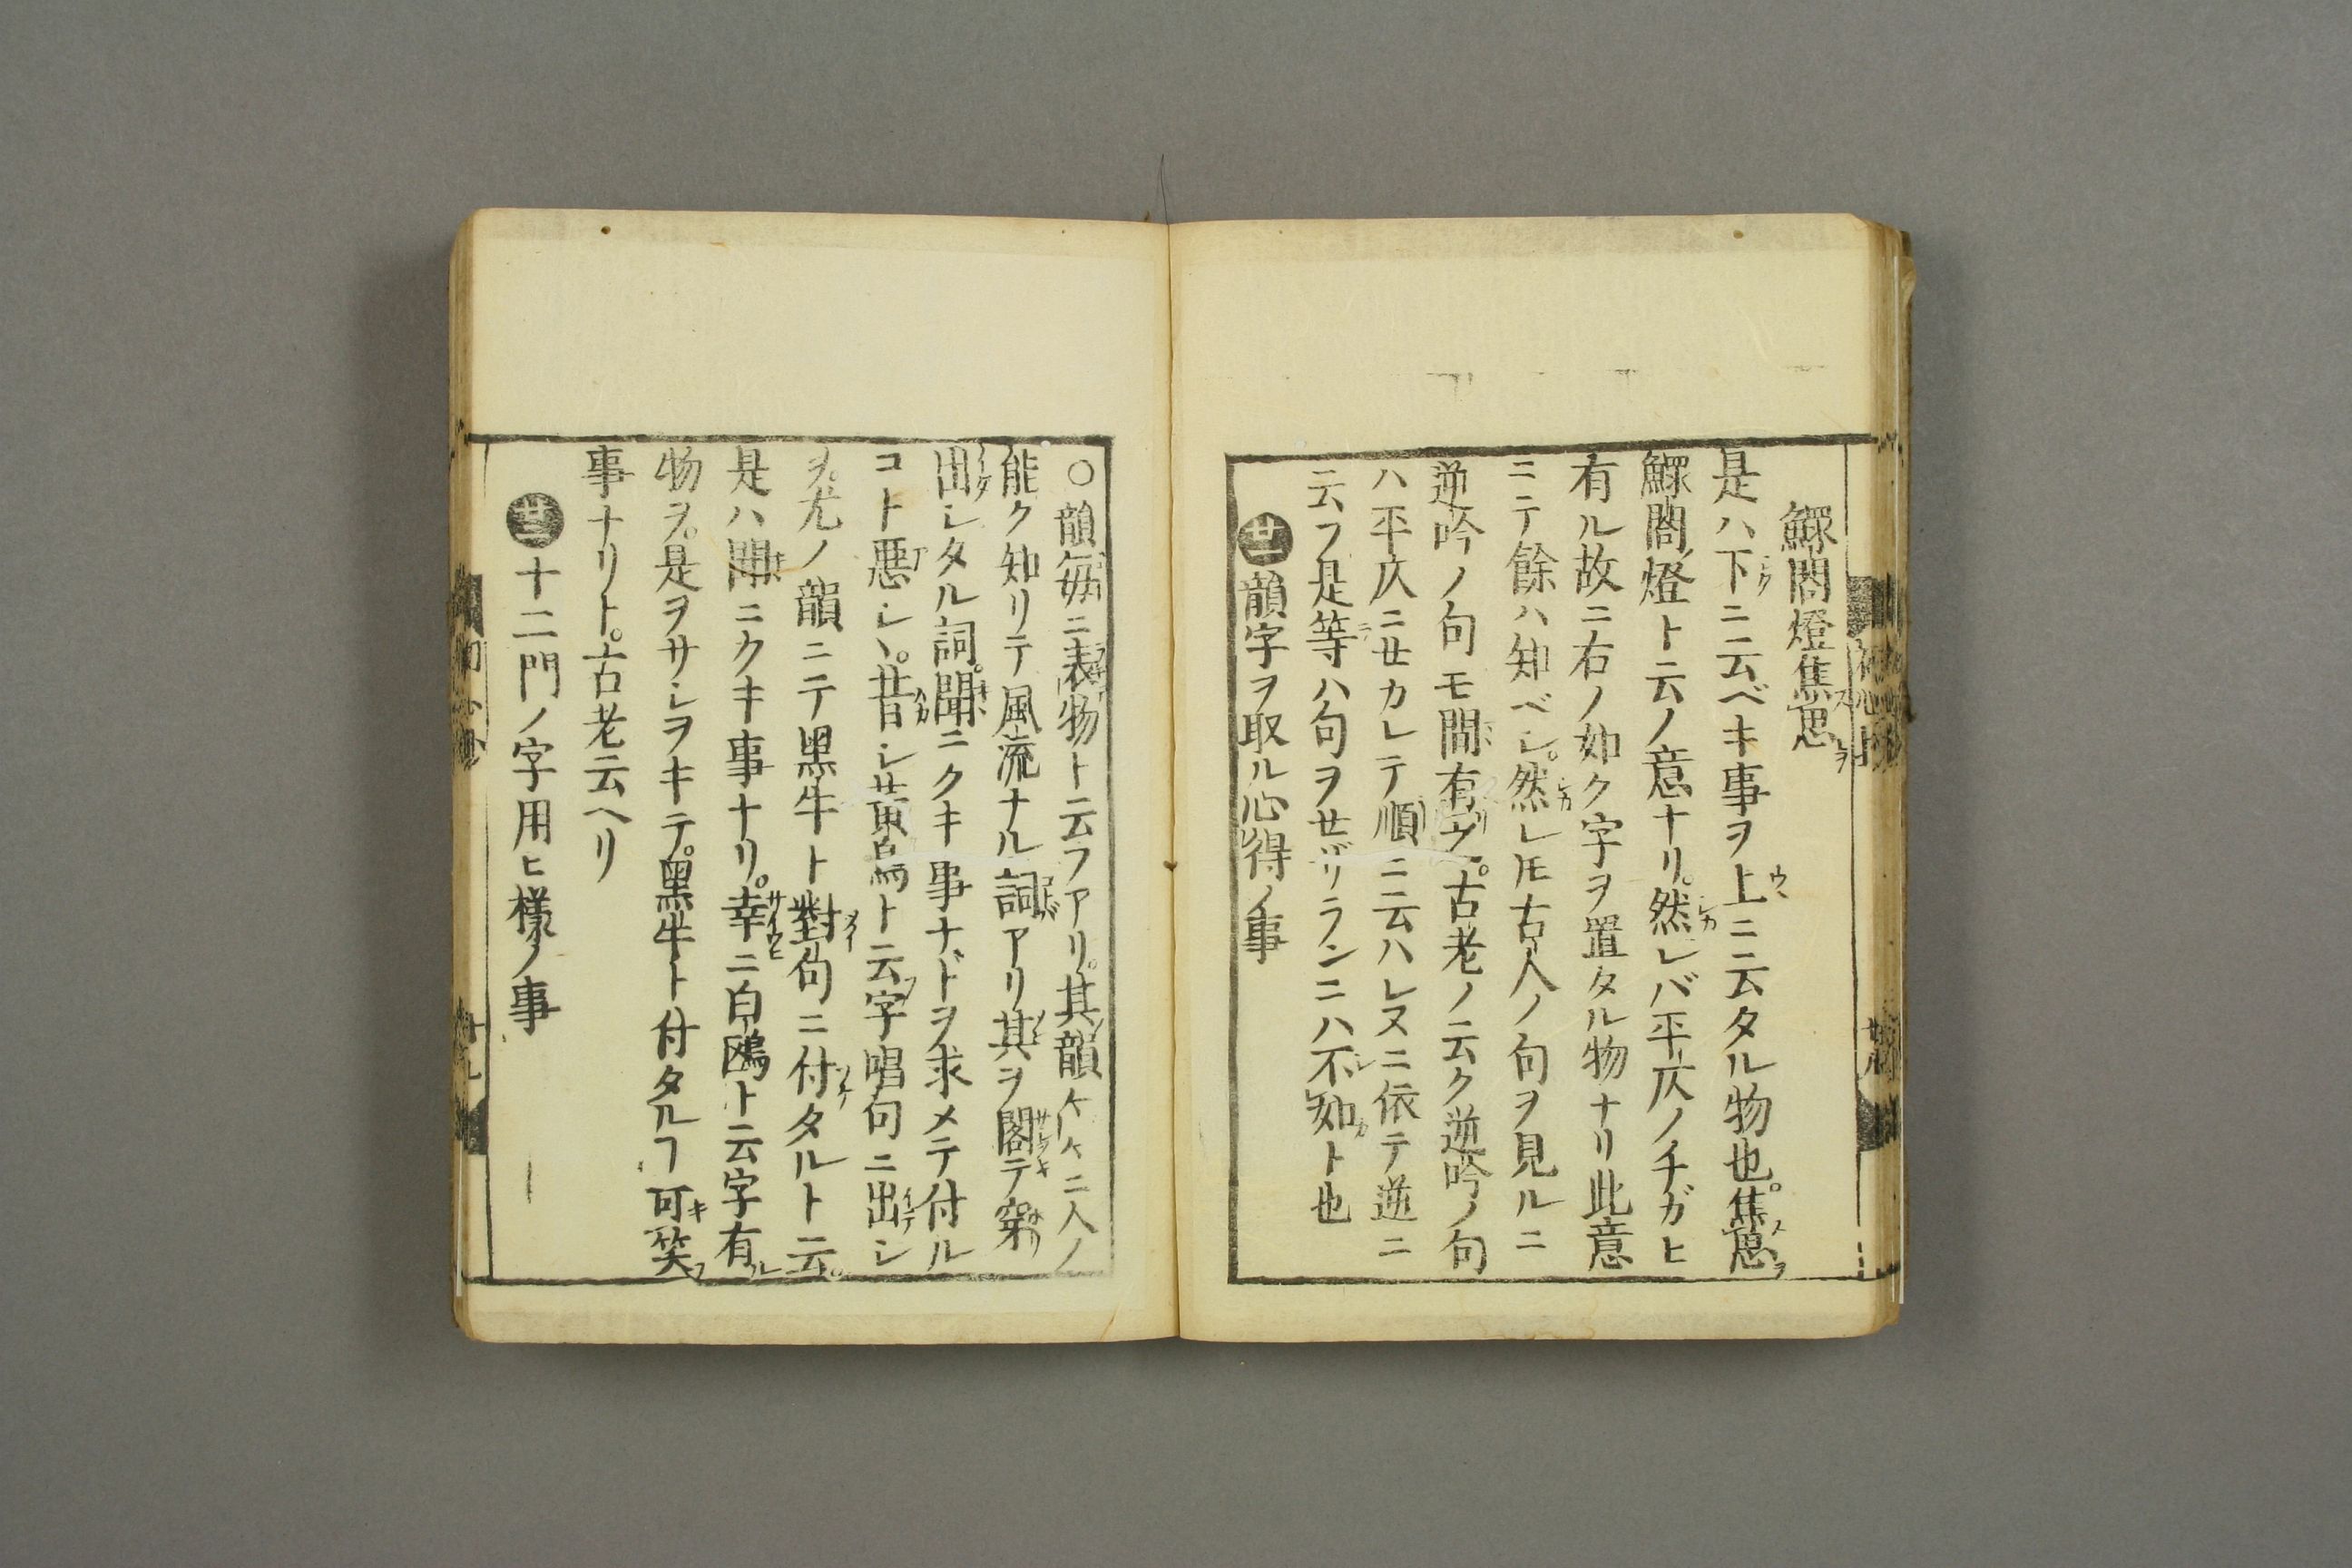 鰥閤燈焦思
是ハ下ニ云ベキ事ヲ上ニ云タル物也。焦思
鰥閤燈ト云ノ意ナリ。然レバ平仄ノチガヒ
有ル故ニ右ノ如ク字ヲ置タル物ナリ此意
ニテ餘ハ知ベシ。然レ𪜈古人ノ句ヲ見ルニ
逆吟ノ句モ間有。古老ノ云ク逆吟ノ句
ハ平仄ニセカレテ順ニ云ハレヌニ依テ逆ニ
云フ是等ハ句ヲセザランニハ不如ト也
廿二 韻字ヲ取ル心得ノ事
○韻毎ニ表物ト云フアリ。其韻〱ニ入ノ
能ク知リテ風流ナル詞アリ其ヲ閣テ穿
出シタル詞。聞ニクキ事ナドヲ求メテ付ル
コト悪シヽ。昔シ黄鳥ト云字唱句ニ出シ
ヲ。尤ノ韻ニテ黒牛ト對句ニ付タルト云。
是ハ聞ニクキ事ナリ。幸ニ白鴎ト云字有
物ヲ。是ヲサシヲキテ。黒牛ト付タルヿ可笑
事ナリト。古老云ヘリ
廿三 十二門ノ字用ヒ様ノ事